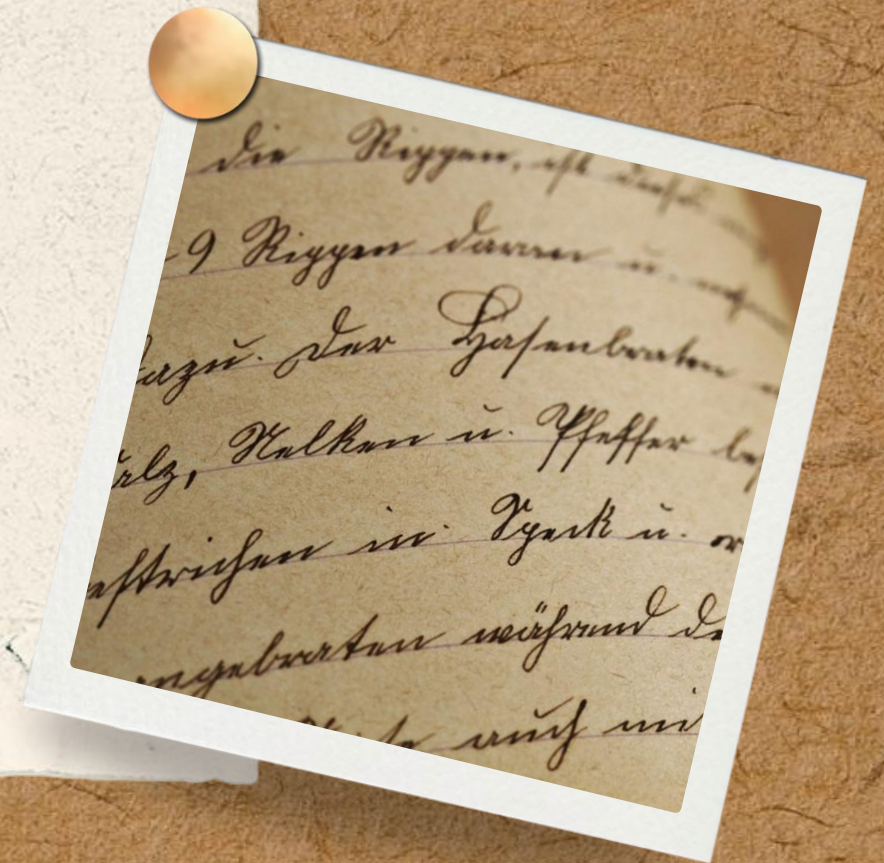 die Rippen, ist
9 Rippen daran u.
dazu. Der Hasenbraten
Salz, Nelken u. Pfeffer
estrichen in Speck u.
angebraten während
auch mit